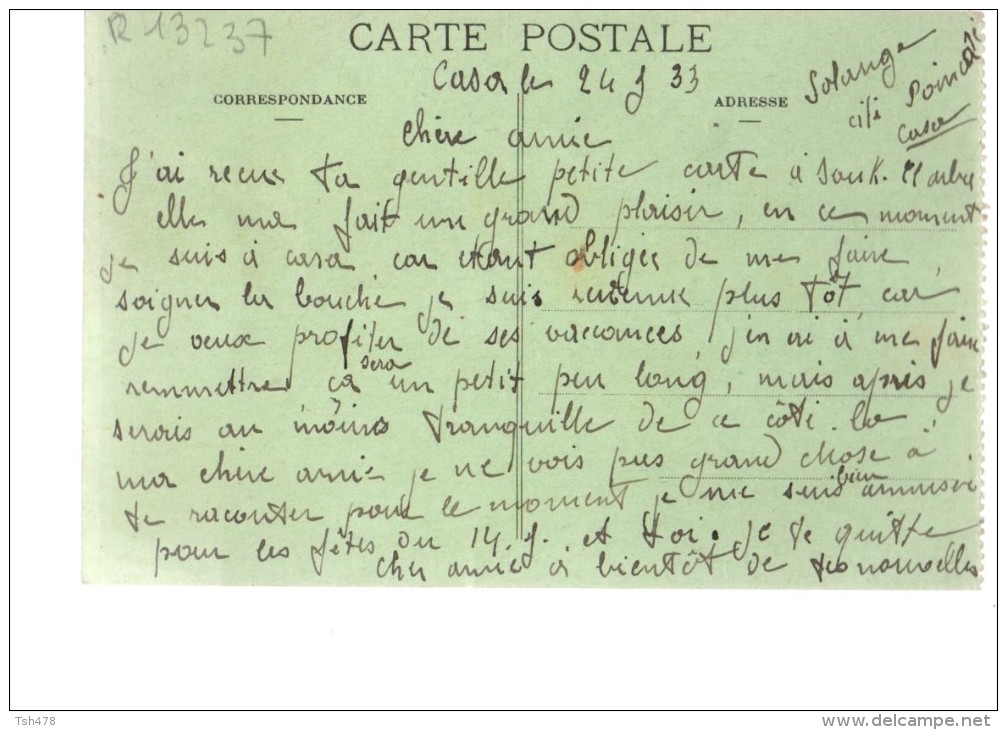 R 13237
CARTE POSTALE
Casa le 24 J 33
CORRESPONDANCE
ADRESSE
Solange
citi Poincaré
Casa
Chère amie
J'ai recue ta gentille petite carte à Souk. El arba
elle ma fait un grand plaisir, en ce moment
je suis à casa, car étant obligée de me faire
soigner la bouche je suis rentenue plus tôt, car
je veux profiter de ses vaccances, j'en ai à me faire
remmettre ça sera un petit peu long, mais après je
serais au moins tranquille de ce côté. la
ma chère amie je ne vois pas grand chose à
te raconter pour le moment je me suis bien ammusé
pour les fêtes du 14. J. et toi. je te quitte
cher amie à bientôt de tes nouvelles
Tsh478
www.delcampe.net